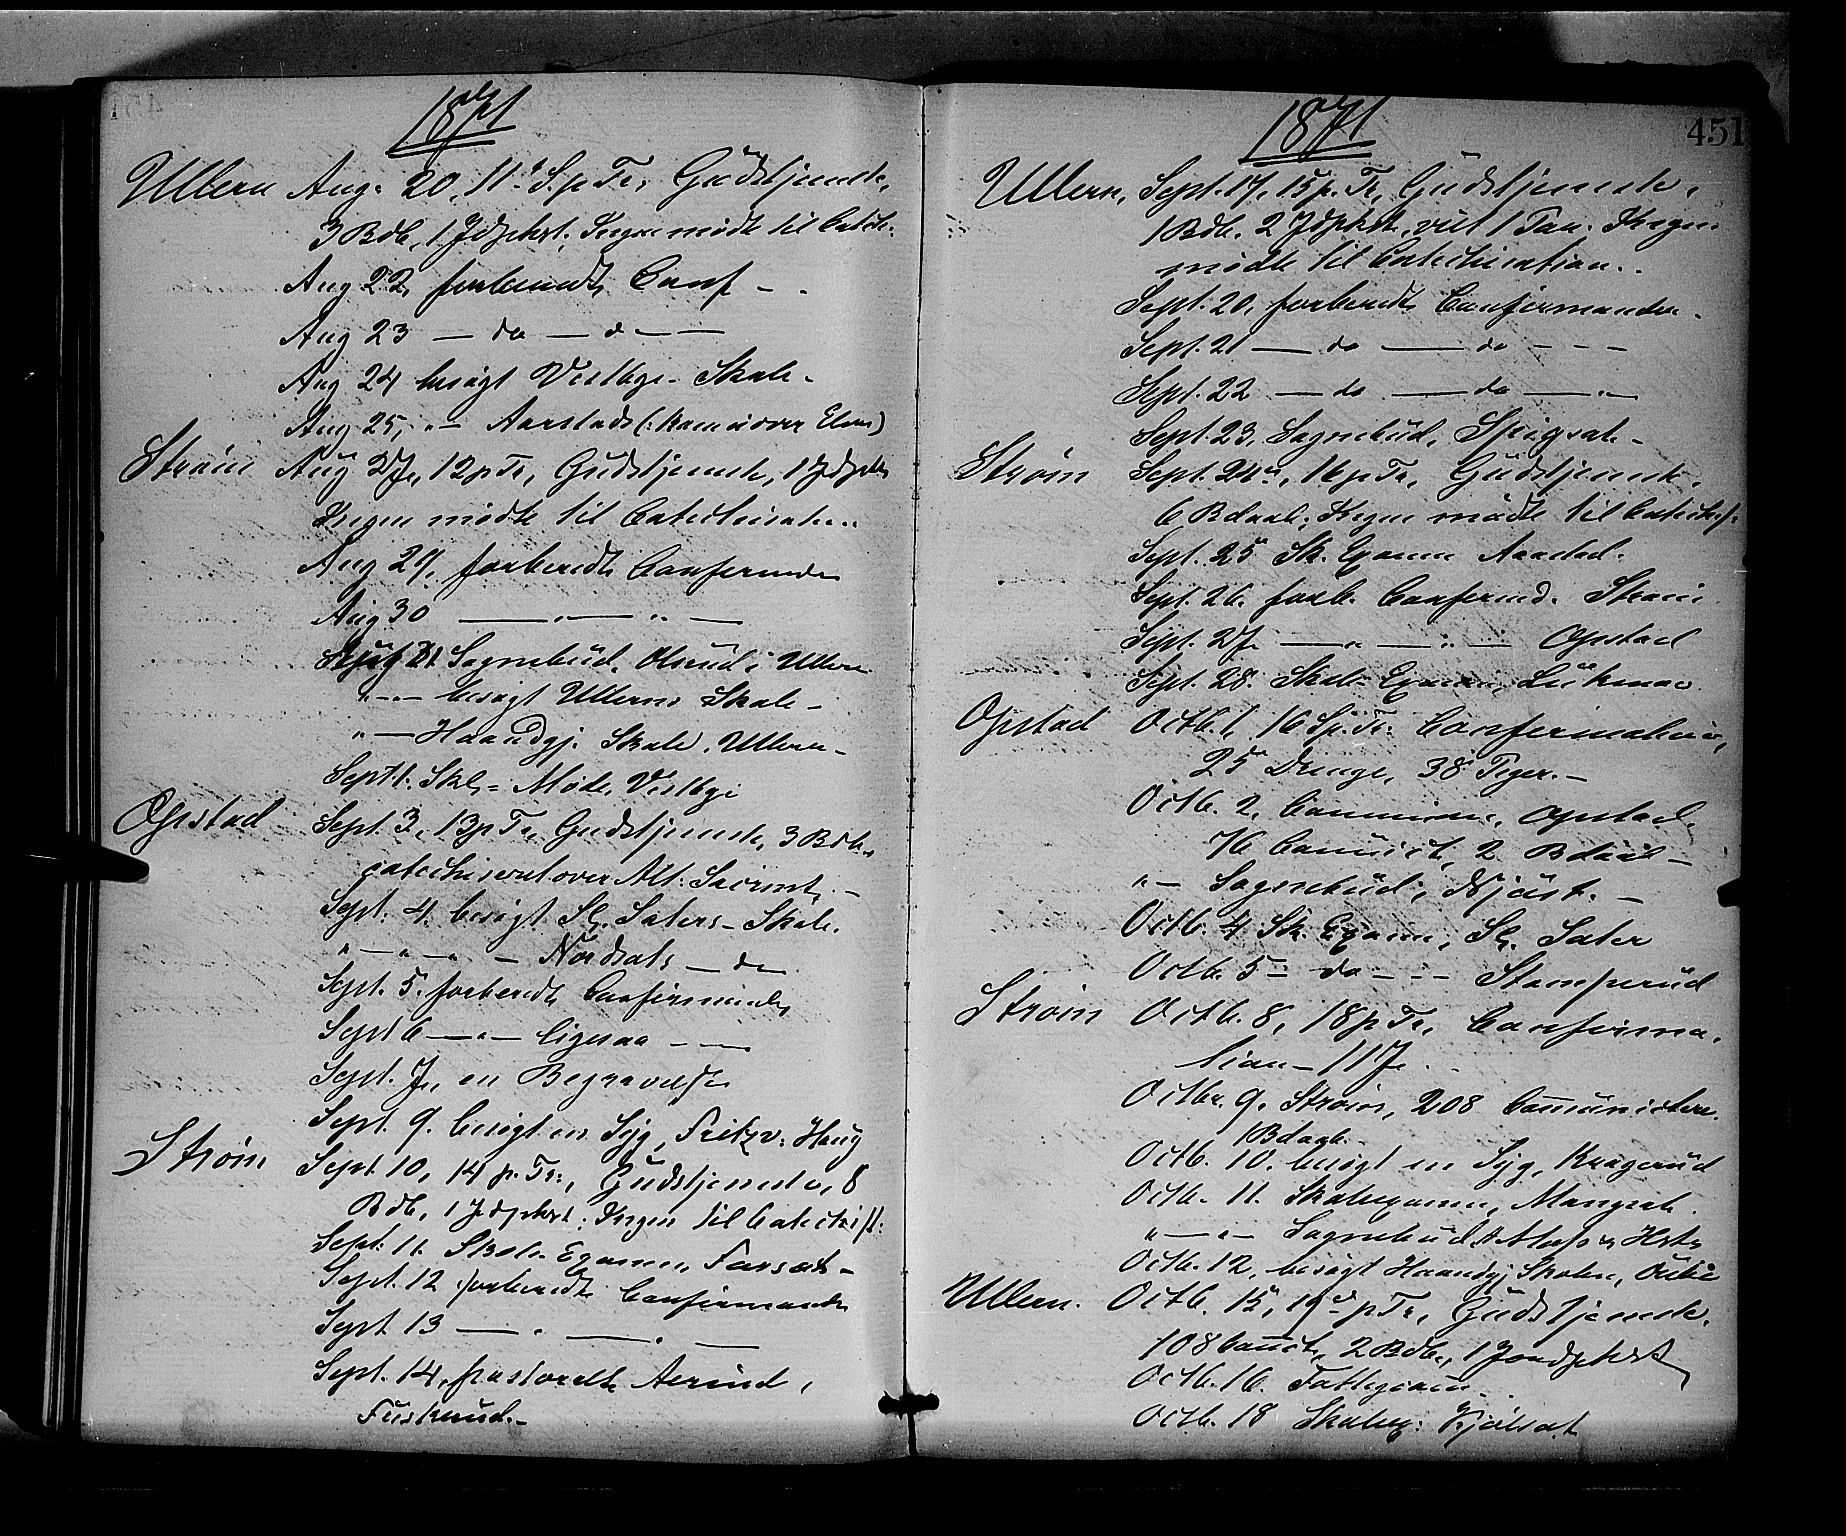 1871
Ullern Aug. 20, 11' S.p Tr, Gudstjeneste,
3 Bdb, 1 Jdpkst. Ingen mødte til Catch:
Aug 22, forberedt, Conf - .
Aug 23 — do — d— —
Aug 24 besøgt Vestbye - Skole -
Aug 25, "— Aarstads (: kom ei over Elven)
Strøm Aug 27, 12 p Tr, Gudstjeneste, 1 Jdpkst
Ingen mødte til Catechisat..
Aug 29, forberedt Confirmder
Aug 30 — " — " —
Aug 31 Sognebud, Olsrud i Ullern
" — besøgt Ullerns Skole -
" — Haandgj. Skole, Ullern -
Sept. 1. Skl - Møde, Vestbye
Opstad Sept. 3, 13 p Tr, Gudstjeneste, 3 Bdb.,
catechiseret over Alt: Sacrmt, -
Sept. 4. besøgt Sl. Saters - Skole.
" — " — " — Nordsats — do
Sept. 5. forberedt Confirmander
Sept 6 — " — ligesaa - —
Sept. 7, en Begravelse
Sept. 9. besøgt en Syg, Haug
Strøm Sept. 10, 14 p. Tr:, Gudstjeneste, 8
Bdb, 1 Jdpkst; Ingen til Catechis:
Sept. 11. Skole Examen,
Sept. 12 forberedt Confirmander
Sept 13 — " — " —
Sept. 14, pastoralt Aerind,
Fuskerud. -
1871
451
Ullern, Sept. 17, 15 p. Tr, Gudstjeneste,
1 Bdb. 2 Jdpkst, Ingen
mødte til Catechisation..
Sept. 20, forberedt Confirmander.
Sept. 21 — do — do - - -
Sept. 22 — do — do — " —
Sept. 23, Sognebud,
Strøm Sept. 24', 16 p Tr, Gudstjeneste,
6 Bdaab. Ingen mødte til Catechis:
Sept. 25 Sk. Examen Aarstad.
Sept. 26. forb. Confirmd. Strøm
Sept. 27. — " — " — Opstad
Sept. 28. Skole Examen,
Opstad Octb. 1, 16 S.p. Tr: Confirmation,
25 Drenge, 38 Piger. -
Octb. 2, Communion, Opstad,
76 Comunict, 2 Bdaab -
" — Sognebud,
Octb. 4 Sk. Examen, Sl. Sater
Octb. 5 - do - - - Stomperud
Strøm Octb. 8, 18 p Tr, Confirma-
tion - 117.
Octbr. 9. Strøm, 208 Comunicter.
1 Bdaab.
Octb. 10. besøgt en Syg, Kragerud
Octb. 11. Skoleexamen,
" — " — Sognebud
Octb. 12, besøgt Haandgj Skolen,
Ullern. Octb. 15, 19' p Tr, Gudstjeneste.
108 Comct, 2 Bdb., 1 Jordpkst
Octb. 16. Fattigcom. -
Octb. 18 Skoleex: Kjølsat